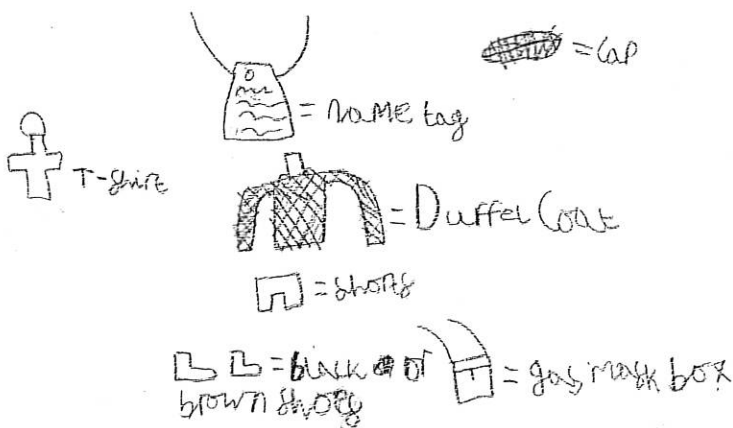 = Cap
= name tag
T-shirt
= Duffel Coat
= shorts
= black or
brown shoes
= gas mask box